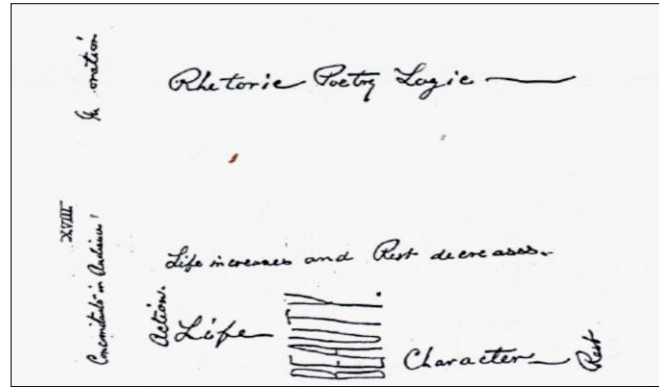 In oration.
Rhetoric Poetry Logic
XVIII
Concomitants in Audience!
Life increases and Rest decreases.
Action.
Life
Character
Rest